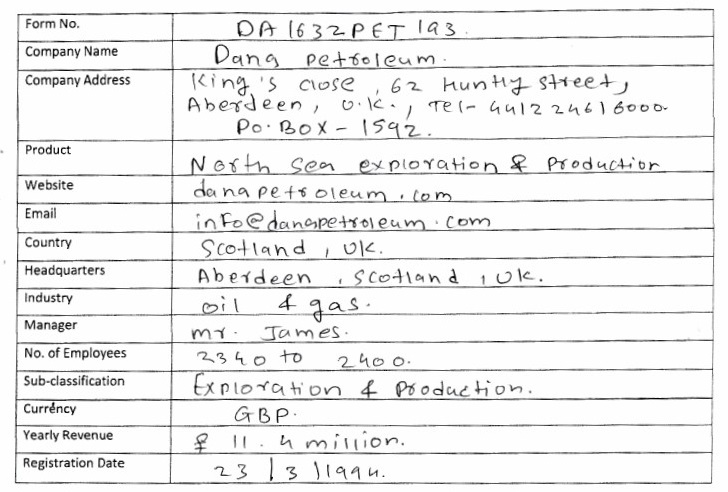 Form No. DA 1632PET 193.
Company Name Dana petroleum.
Company Address King's close, 62 Huntly street,
Aberdeen, U.K., Tel- 441224616000.
Po. BOX - 1592.
Product North Sea exploration & Production
Website danapetroleum.com
Email info@danapetroleum.com
Country Scotland, UK.
Headquarters Aberdeen, Scotland, UK.
Industry oil & gas.
Manager mr. James.
No. of Employees 2340 to 2400.
Sub-classification Exploration & Production.
Currency GBP.
Yearly Revenue £ 11.4 million.
Registration Date 23/3/1994.